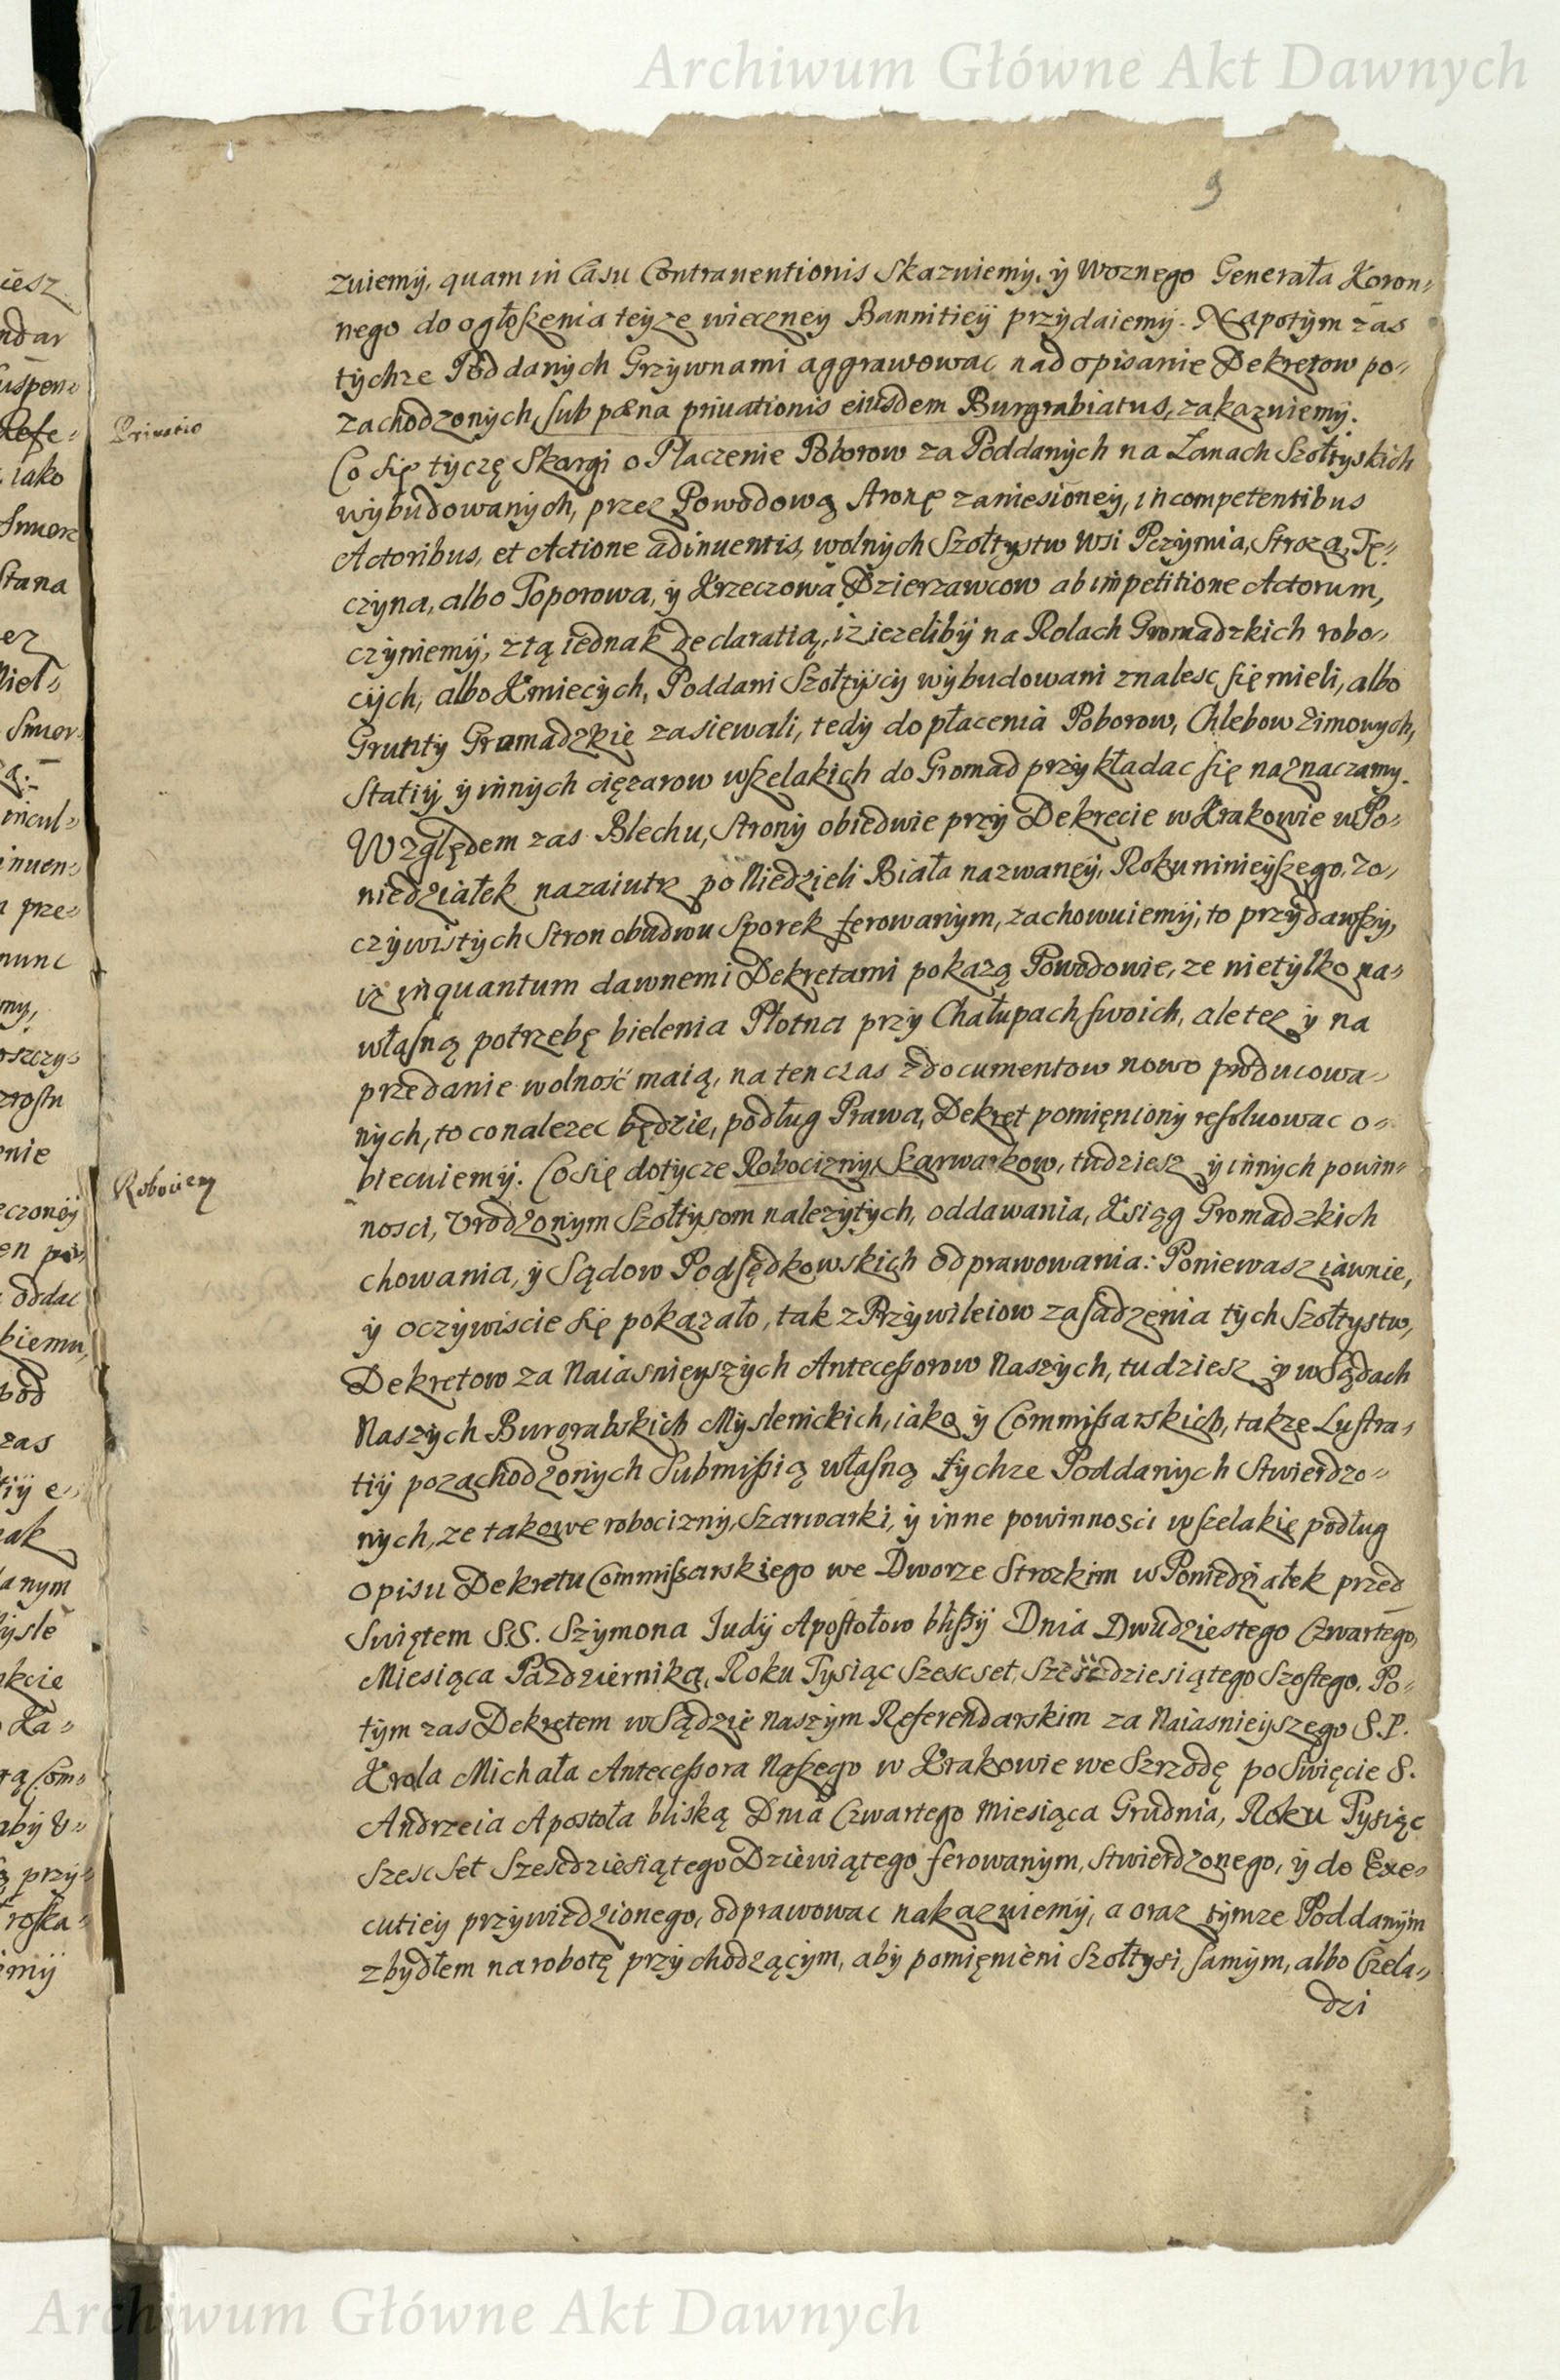 Archiwum Główne Akt Dawnych
9
zuiemy, quam in Casu Contrauentionis Skazuiemy, y Woznego Generała Koron=
nego do ogłoszenia teyze wieczney Bannitiey przydaiemy. Napotym zas
tychze Poddanych Grzywnami aggrawowac, nad opisanie Dekretow po=
Priuatio
zachodzonych, sub pæna priuationis eiusdem Burgrabiatus, zakazuiemy.
Co się tyczę Skargi o Płaczenie Poborow za Poddanych na Łanach Szołtyskich
wybudowanych, przez Powodową stronę zaniesioney, incompetentibus
Actoribus, et Actione adinuentis, wolnych Szołtystw Wsi Pczymia, Stroza, Tę=
czyna, albo Toporowa, y Krzeczowa Dzierzawcow ab impetitione Actorum,
czyniemy, z tą iednak declaratią, iz iezeliby na Rolach Gromadzkich robo=
cych, albo Kmiecych, Poddani Szołtyscy wybudowani znalesc się mieli, albo
Grunty Gromadzkie zasiewali, tedy do płacenia Poborow, Chlebow Zimowych,
Statiy, y innych cięzarow wszelakich do Gromad przykładac się naznaczamy.
Względem zas Blechu, Strony obiedwie przy Dekrecie w Krakowie w Po=
niedziałek nazaiutrz po Niedzieli Biała nazwaney, Roku ninieyszego, zo=
czywistych Stron obudwu Sporek ferowanym, zachowuiemy, to przydawszy,
iz inquantum dawnemi Dekretami pokazą Powodowie, ze nietylko na=
własną potrzebę bielenia Płotna przy Chałupach swoich, ale tez y na
przedanie wolność maią, na ten czas z documentow nowo producowa=
nych, to co nalezec będzie, podług Prawa, Dekret pomięniony resoluowac o=
Robocizny
biecuiemy. Co się dotycze Robocizny, Szarwarkow, tudziesz y innych powin=
nosci, Urodzonym Szołtysom nalezytych, oddawania, Ksiąg Gromadzkich
chowania, y Sądow Podsędkowskich odprawowania: Poniewasz iawnie,
y oczywiscie się pokazało, tak z Przywileiow zasadzenia tych Szołtystw,
Dekretow za Naiasnieyszych Antecessorow Naszych, tudziesz y w Sądach
Naszych Burgrabskich Myslenickich, iako y Commissarskich, takze Lustra=
tiy pozachodzonych Submissią własną tychze Poddanych Stwierdzo=
nych, ze takowe robocizny, Szarwarki, y inne powinnosci wszelakie podług
opisu Dekretu Commissarskiego we Dworze Strozkim w Poniedziałek przed
Swiętem S.S. Szymona Judy Apostołow bliszy Dnia Dwudziestego Czwartego,
Miesiąca Pazdziernika, Roku Tysiąc Szescset, Szesćdziesiątego Szostego, Po=
tym zas Dekretem w Sądzie Naszym Referendarskim za Naiasnieyszego S.P.
Krola Michała Antecessora Naszego w Krakowie we Szrzodę po Swięcie S.
Andrzeia Apostoła bliską Dnia Czwartego Miesiąca Grudnia, Roku Tysiąc
Szesc Set Szescdziesiątego Dziewiątego ferowanym, stwierdzonego, y do Exe=
cutiey przywiedzionego, odprawowac nakazuiemy, a oraz tymze Poddanym
z bydłem na robotę przychodzącym, aby pomięnieni Szołtysi, samym, albo Czela=
dzi
Archiwum Główne Akt Dawnych